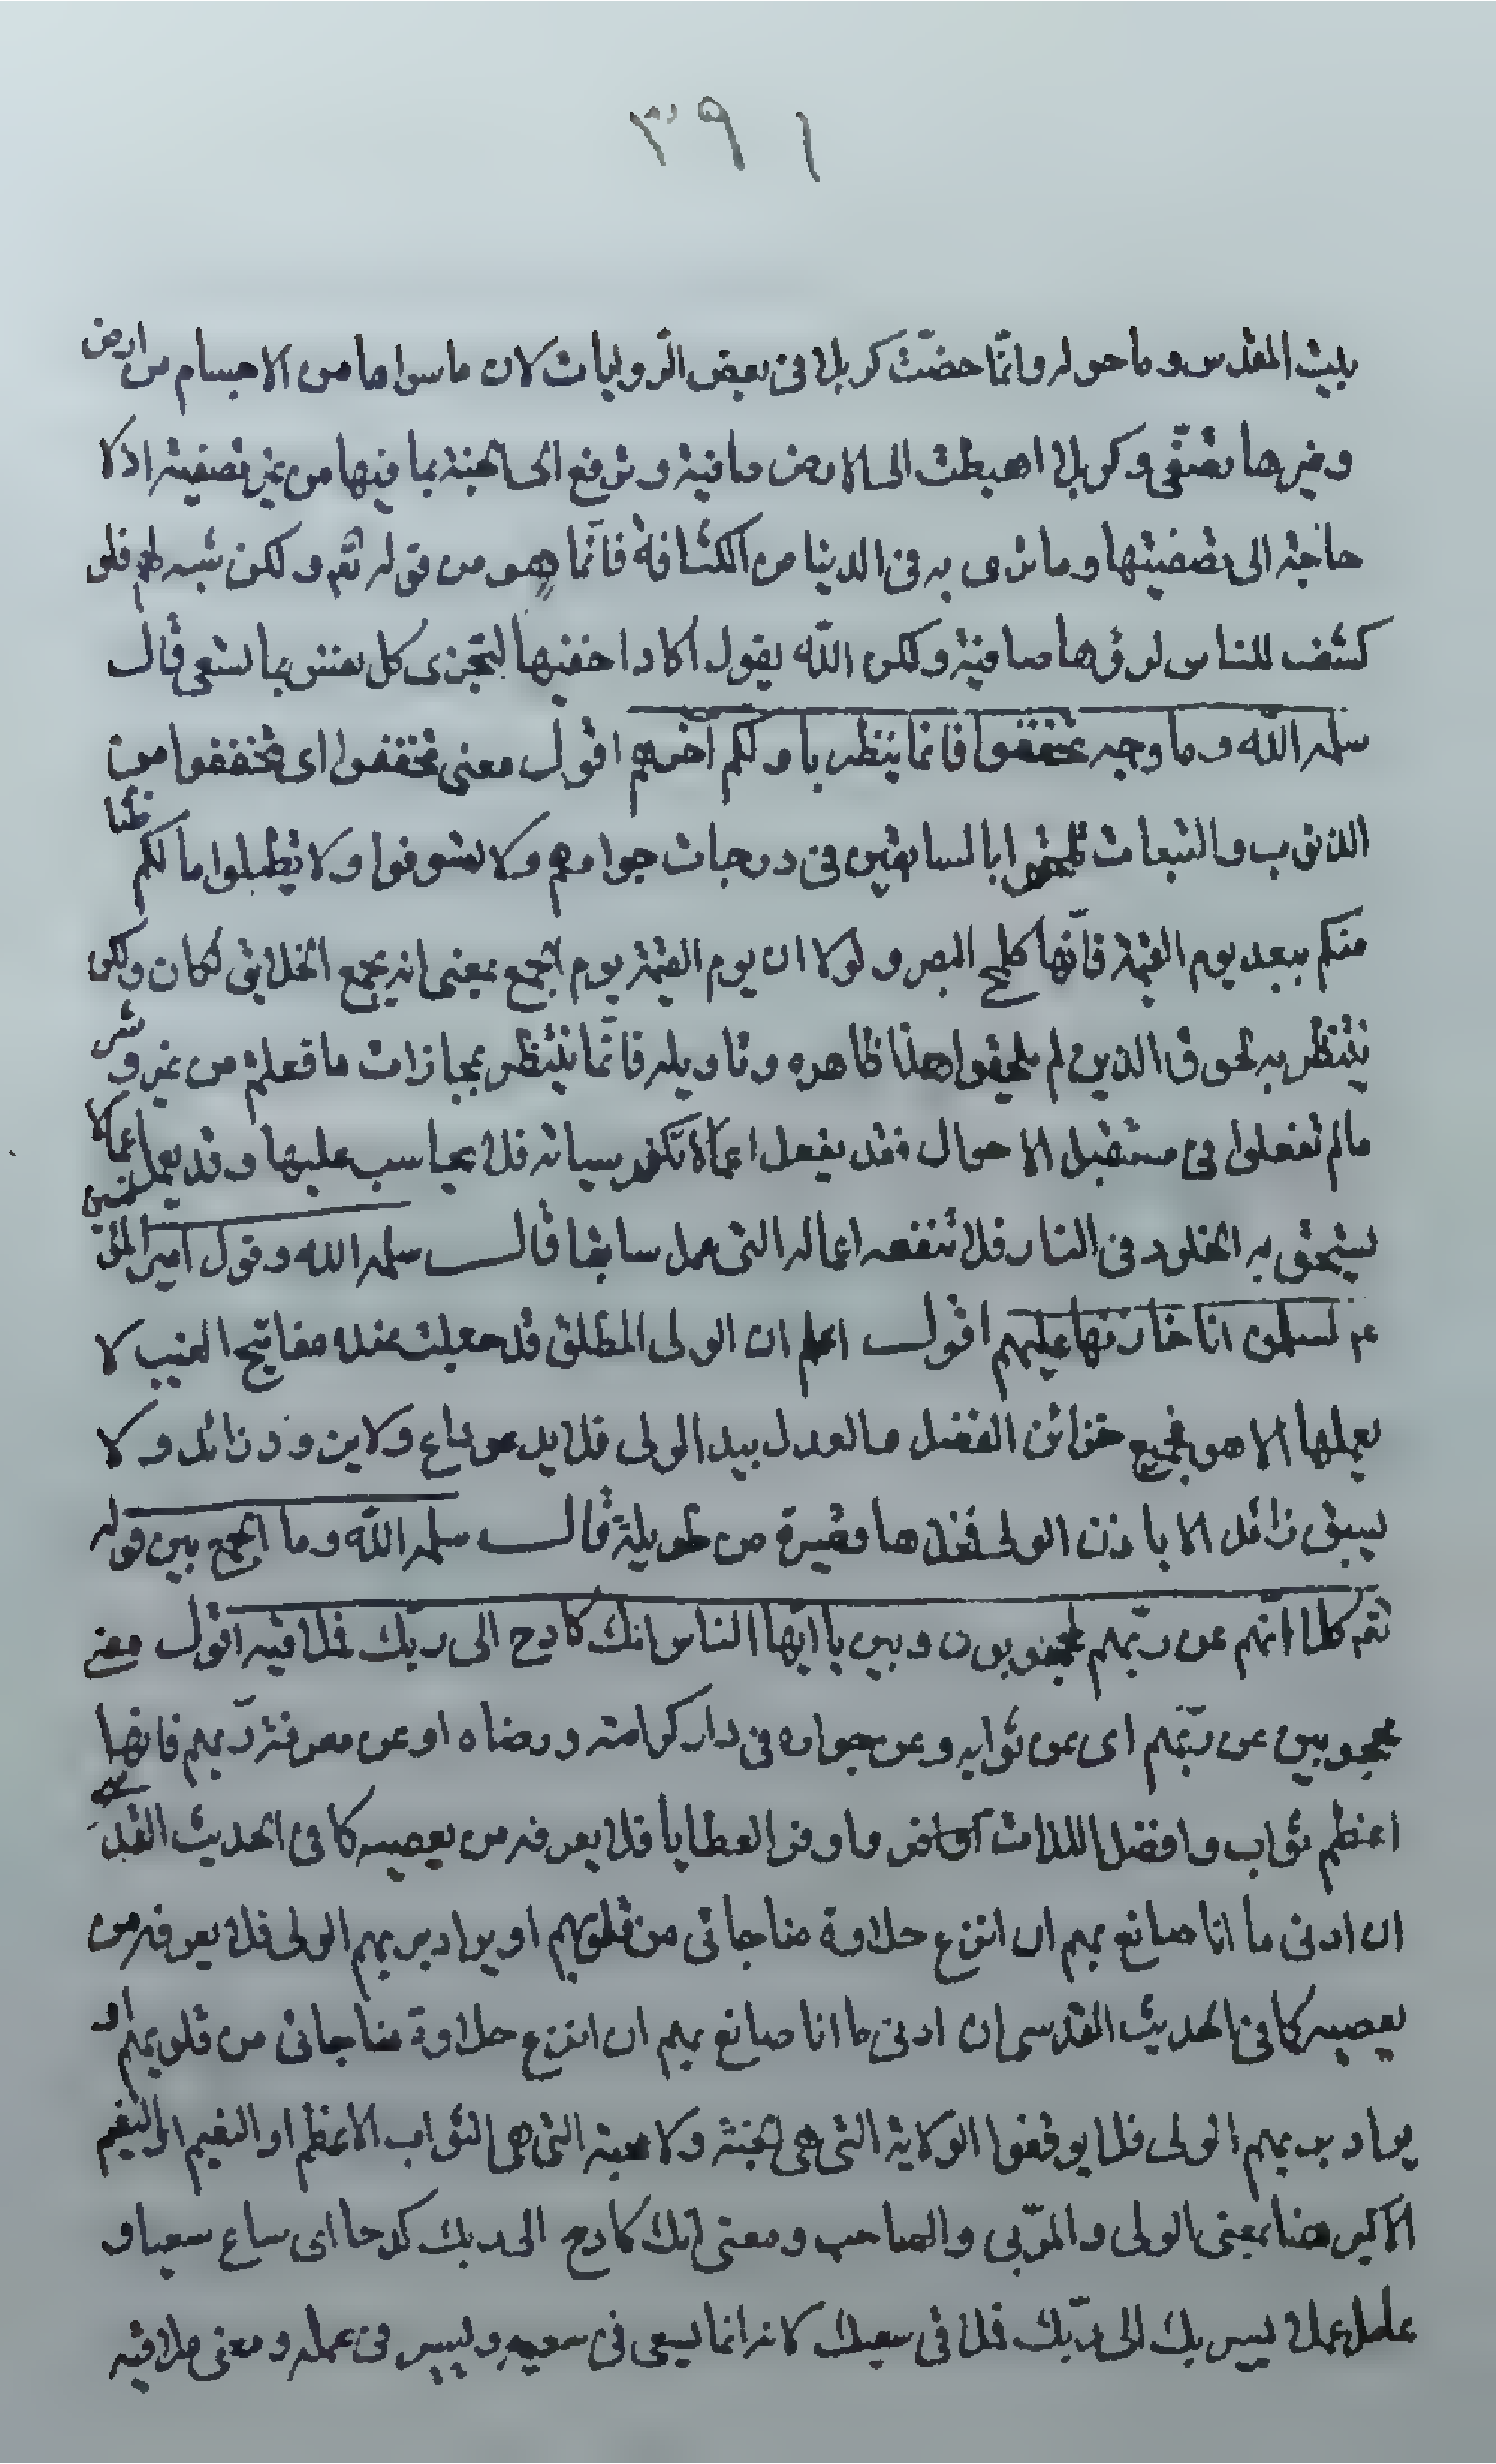 ٣٩١
بيت المقدس وما حوله وانّما خصّت كربلا في بعض الروايات لان ما سواها من الاجسام من ارض
وغيرها تصفّى وكربلا اهبطت الى الارض صافية وترفع الى الجنة بما فيها من غير تصفية اذ لا
حاجة الى تصفيتها وما ترى به في الدنيا من الكثافة فانّما هو من قوله تعم ولكن شبه لهم فلو
كشف للناس لرؤها صافية ولكن الله يقول اكاد اخفيها لتجزى كل نفس بما تسعى قال
سلمه الله وما وجه تخففوا فانما ينتظر باولكم آخرهم اقول معنى تخففوا اى تخففوا من
الذنوب والتبعات تلحقوا بالسابقين في درجات جوارهم ولا تسوفوا ولا تطيلوا مالكم ظنا
منكم ببعد يوم القيمة فانّها كلمح البصر ولولا ان يوم القيمة يوم الجمع بمعنى انه يجمع الخلايق لكان ولكن
ينتظر به لحوق الذين لم يلحقوا هذا ظاهره وتاويله فانّما ينتظر بمجازات ما فعلتم من خير وشر
ما لم تفعلوا في مستقبل الاحوال فقد يفعل اعمالا تكفر سياته فلا يحاسب عليها وقد يعمل عملا
يستحق به الخلود في النار فلا تنفعه اعماله التي عمل سابقا قال سلمه الله وقول امير المؤمنين
عم لسلمن انا خازنها عليهم اقول اعلم ان الولى المطلق قد جعلت عنده مفاتيح الغيب لا
يعلمها الا هو فجميع خزائن الفضل والعدل بيد الولى فلا يدعو داع ولا يذود زائد ولا
يسبق زائد الا باذن الولى فخذها قصيرة من طويلة قال سلمه الله وما الجمع بين قوله
تعم كلا انّهم عن ربّهم لمحجوبون وبين يا ايّها الناس انك كادح الى ربّك فملاقيه اقول معنى
محجوبين عن ربّهم اى عن ثوابه وعن جواره في دار كرامته ورضاه او عن معرفة ربّهم فانها
اعظم ثواب وافضل اللذات واوفر العطايا فلا يعرفه من يعصيه كما في الحديث القدسى
ان ادنى ما انا صانع بهم ان انزع حلاوة مناجاتى من قلوبهم او يراد بربهم الولى فلا يعرفه من
يعصيه كما في الحديث القدسى ان ادنى ما انا صانع بهم ان انزع حلاوة مناجاتى من قلوبهم او
يراد بربهم الولى فلا يوفقوا الولاية التي هي الجنة ولا محبة التي هي الثواب الاعظم او النعيم او النعيم
الاكبر هنا بمعنى الولى والمربّى والصاحب ومعنى انك كادح الى ربك كدحا اى ساع سعيا و
عامل عملا يسير بك الى ربّك فملاقى سعيك لانه انما يسعى في سعيه ويسير في عمله ومعنى ملاقيه